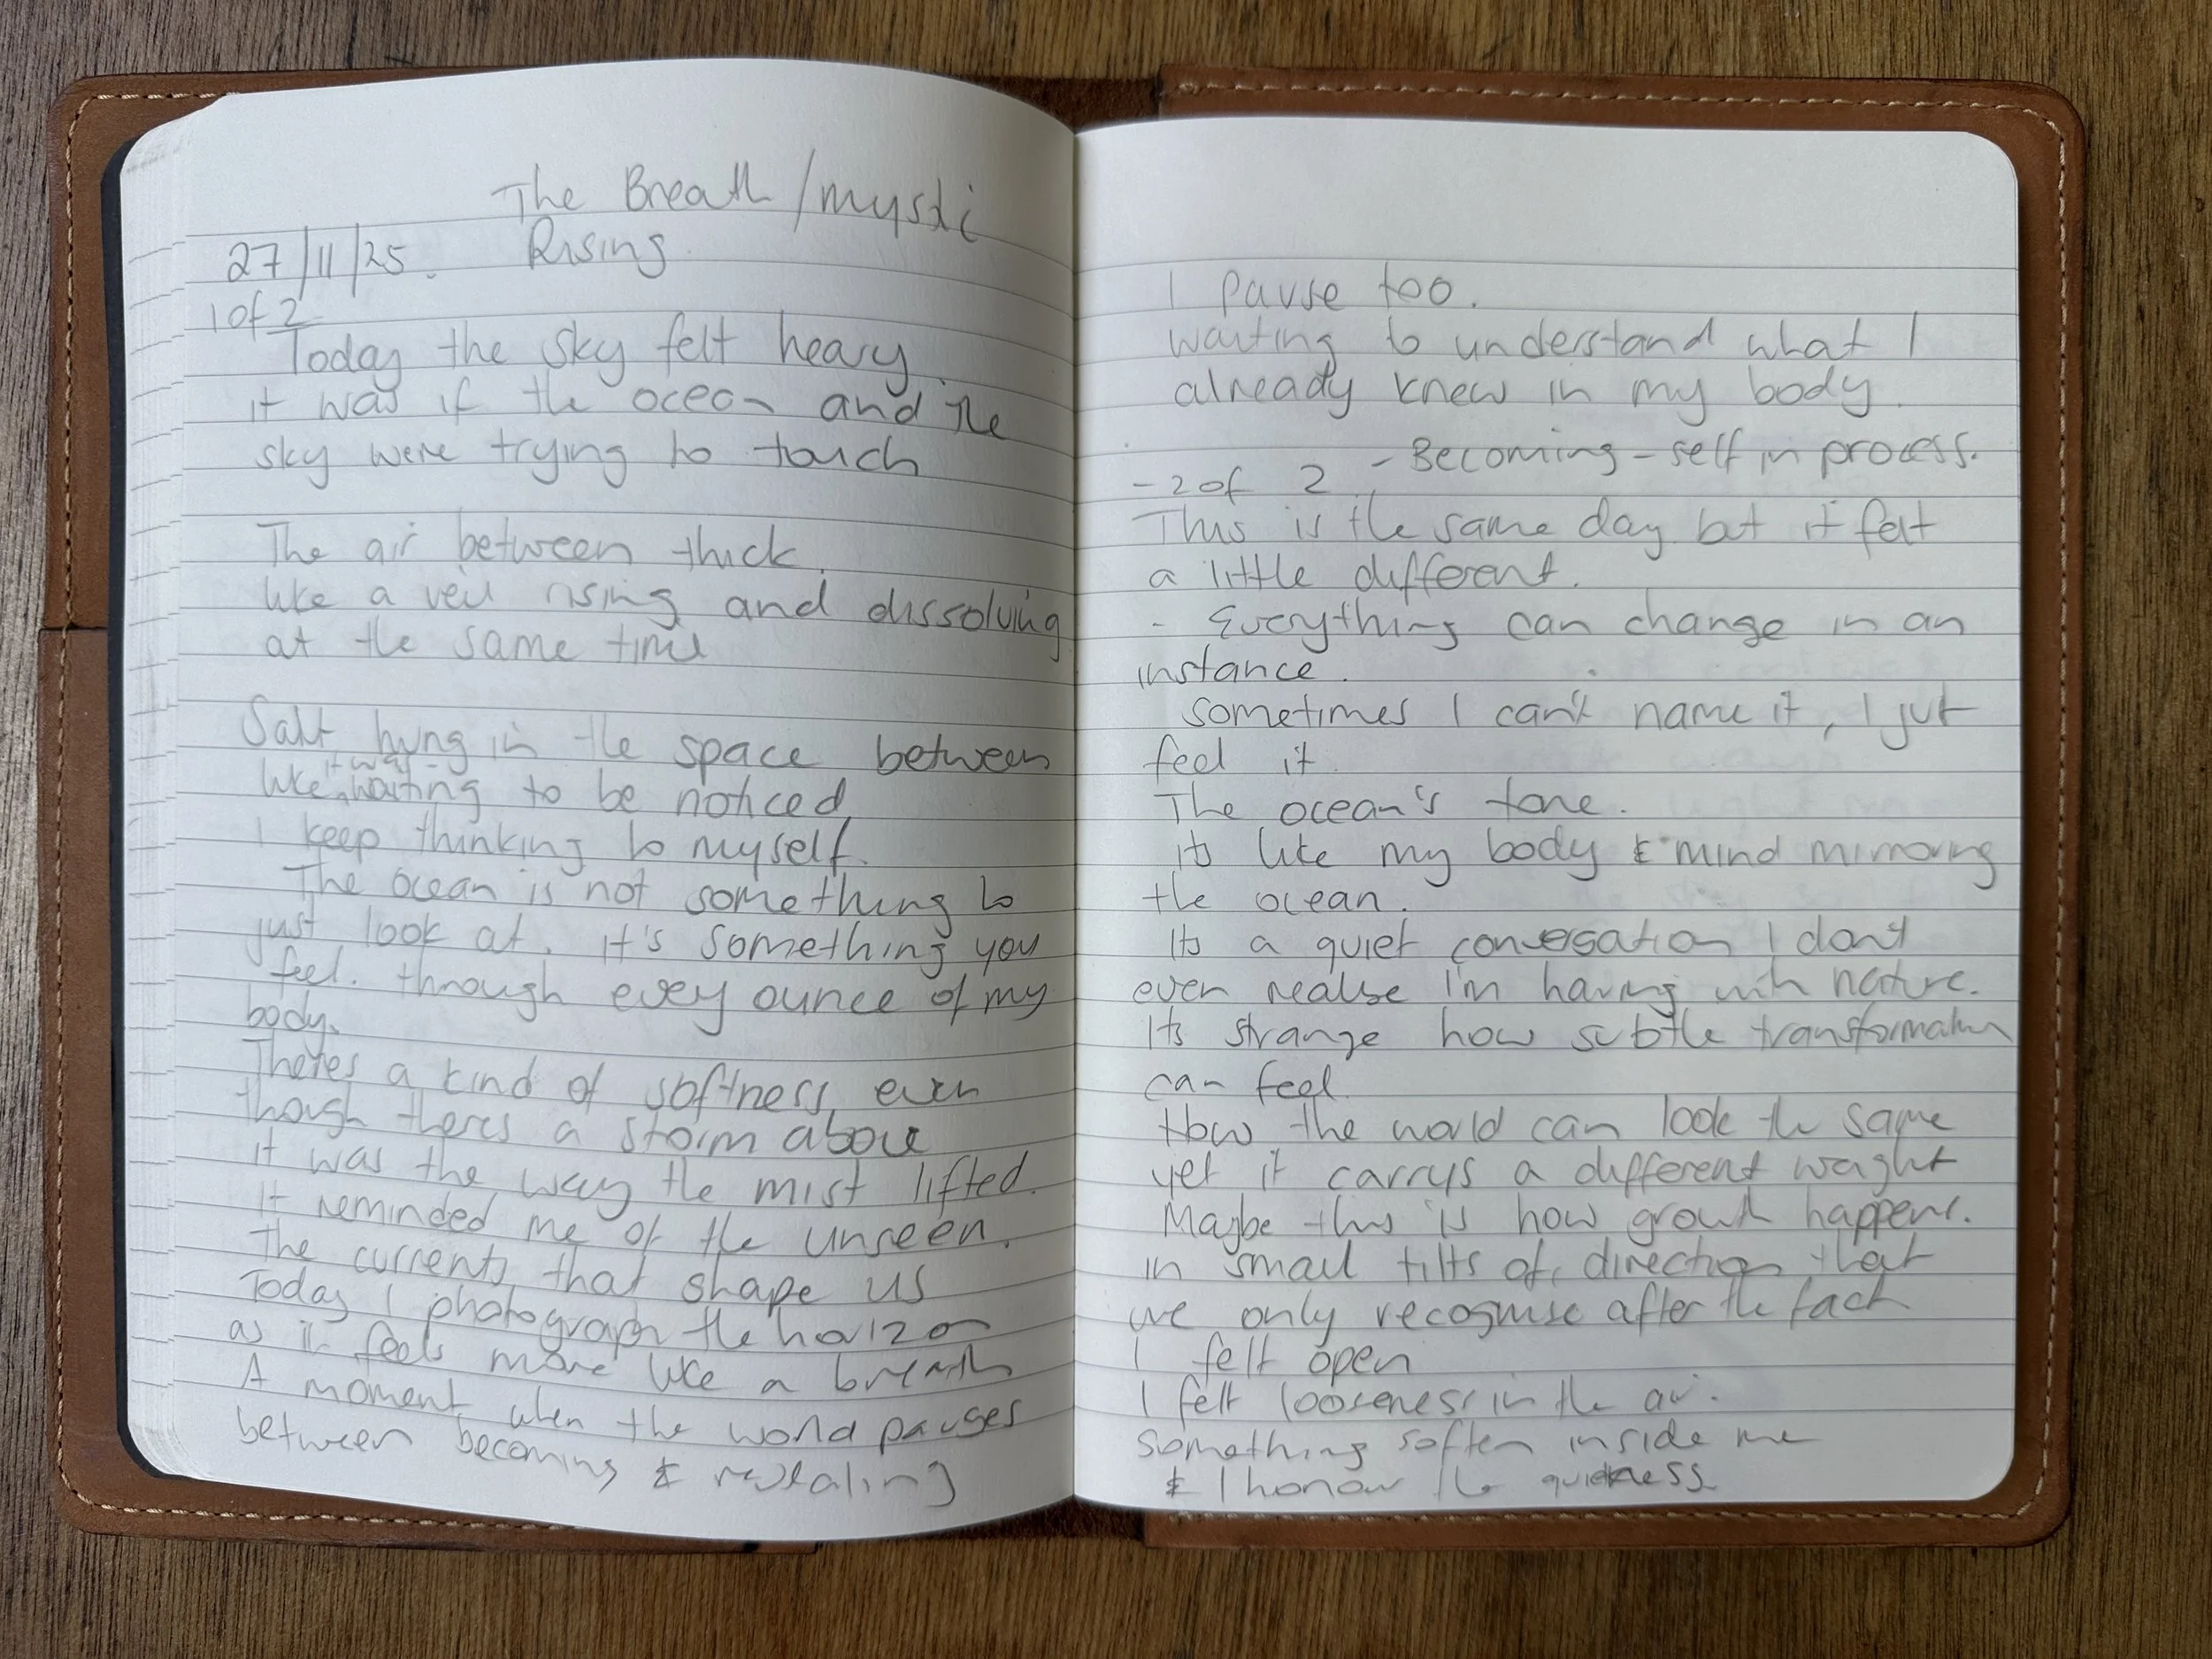 The Breath / mystic
27/11/25. Rising.
1 of 2
Today the sky felt heavy.
it was if the ocean and the
sky were trying to touch
The air between thick.
like a veil rising and dissolving
at the same time
Salt hung in the space between
like it was waiting to be noticed,
I keep thinking to myself.
The ocean is not something to
just look at. it's something you
feel. through every ounce of my
body.
Theres a kind of softness, even
though theres a storm above
it was the way the mist lifted.
It reminded me of the unseen.
The currents that shape us
Today I photograph the horizon
as it feels more like a breath
A moment when the world pauses
between becoming & revealing
I pause too.
waiting to understand what I
already knew in my body.
- Becoming - self in process.
- 2 of 2
This is the same day but it felt
a little different.
- Everything can change in an
instance.
sometimes I can't name it, I jut
feel it.
The ocean's tone.
its like my body & mind mirroring
the ocean.
Its a quiet conversation I don't
even realise I'm having with nature.
Its strange how subtle transformation
can feel.
How the world can look the same
yet it carrys a different weight
Maybe this is how growth happens.
in small tilts of direction that
we only recognise after the fact
I felt open
I felt looseness in the air.
something soften inside me
& I honour the quietness